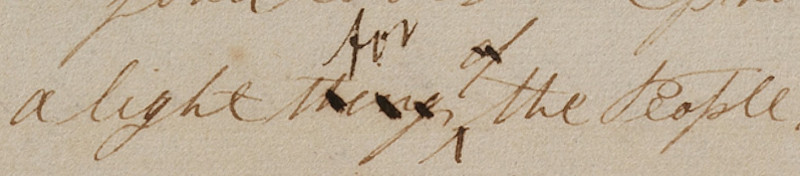 for of
a light things the People.